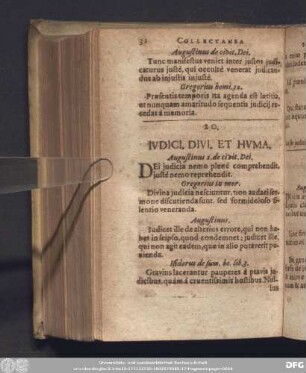 32 COLLECTANEA
Augustinus de civit. Dei.
Tunc manifestus veniet inter justos judi-
caturus justè, qui occultè venerat judican-
dus ab injustis injustè.
Gregorius homi.
Præsentis temporis ita agenda est lætitia,
ut nunquam amaritudo sequentis judicij re-
cedat à memoria.
IUDICI, DIVI, ET HUMA,
Augustinus de civit. Dei.
DEi judicia nemo plenè comprehendit,
justè nemo reprehendit.
Gregorius in mor.
Divina judicia nesciuntur, non audaci ser-
mone discutienda sunt, sed formidoloso si-
lentio veneranda.
Augustinus.
Judicet ille de alterius errore, qui non ha-
bet in seipso, quod condemnet; judicet ille,
qui non agit eadem, quæ in alio putaverit pu-
nienda.
Isidorus de sum. bo. lib. 3.
Gravius lacerantur pauperes à pravis ju-
dicibus, quàm à cruentissimis hostibus. Nul-
lus